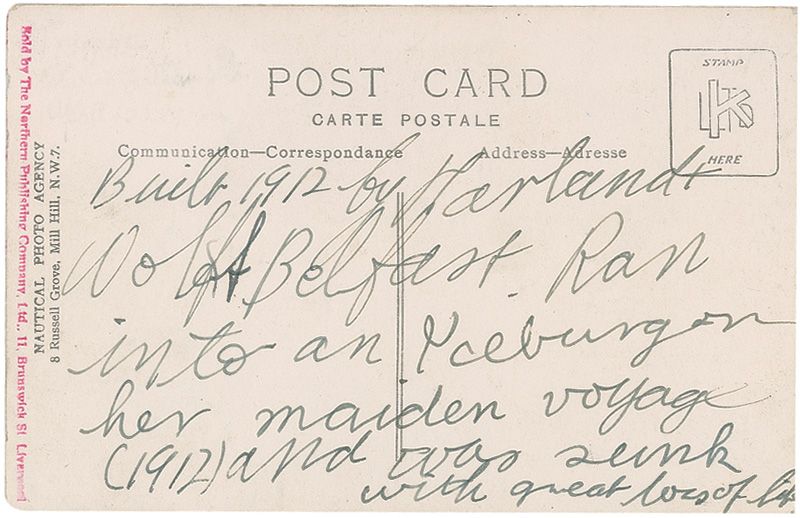 Sold by The Northern Publishing Company, Ltd., 11, Brunswick St. Liverpool
NAUTICAL PHOTO AGENCY
8 Russell Grove, Mill Hill, N.W.7.
POST CARD
CARTE POSTALE
Communication—Correspondance
Address—Adresse
STAMP
HERE
Built 1912 by Harland &
Wolff. Belfast. Ran
into an Yceburg on
her maiden voyage
(1912) and was sunk
with great loss of life